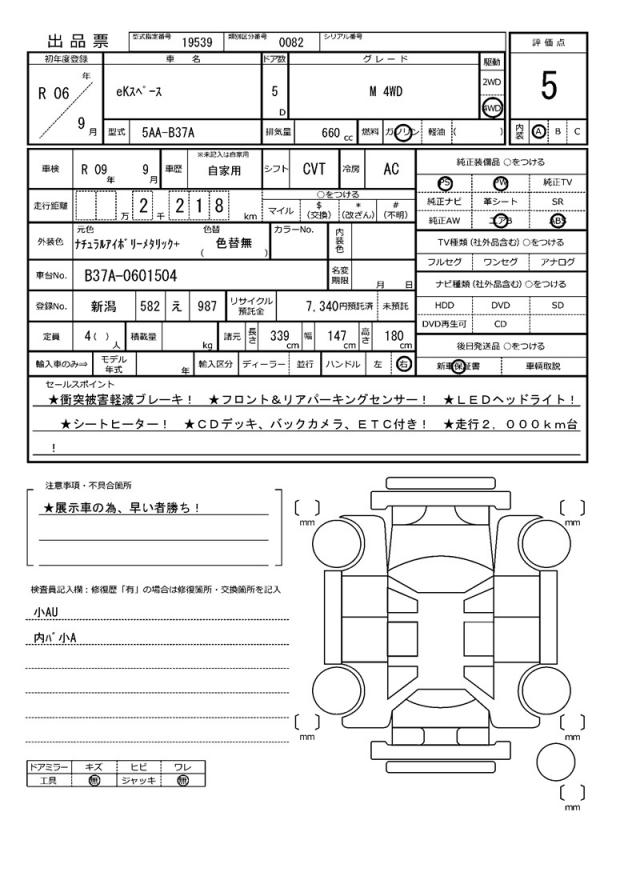 出品票 型式指定番号 19539 類別区分番号 0082 シリアル番号
初年度登録 車名 ドア数 グレード 駆動 評価点
R 06 年 9 月 eKスペース 5 D M 4WD 2WD 4WD 5
型式 5AA-B37A 排気量 660 cc 燃料 ガソリン 軽油 ( ) 内装 A B C
車検 R 09 年 9 月 車歴 ※未記入は自家用 自家用 シフト CVT 冷房 AC 純正装備品 ○をつける
PS PW 純正TV
走行距離 万 2 千 2 1 8 km ○をつける 純正ナビ 革シート SR
マイル $ (交換) * (改ざん) # (不明) 純正AW エアB ABS
外装色 元色 ナチュラルアイボリーメタリック+ 色替 ( 色替無 ) カラーNo. 内装色 TV種類 (社外品含む) ○をつける
フルセグ ワンセグ アナログ
車台No. B37A-0601504 名変期限 月 日 ナビ種類 (社外品含む) ○をつける
登録No. 新潟 582 え 987 リサイクル預託金 7,340円預託済 未預託 HDD DVD SD
DVD再生可 CD
定員 4 ( ) 人 積載量 kg 諸元 長さ 339 cm 幅 147 cm 高さ 180 cm 後日発送品 ○をつける
輸入車のみ⇒ モデル年式 年 輸入区分 ディーラー 並行 ハンドル 左 右 新車保証書 車輌取説
セールスポイント
★衝突被害軽減ブレーキ! ★フロント&リアパーキングセンサー! ★LEDヘッドライト!
★シートヒーター! ★CDデッキ、バックカメラ、ETC付き! ★走行2.000km台
!
注意事項・不具合箇所
★展示車の為、早い者勝ち!
検査員記入欄:修復歴「有」の場合は修復箇所・交換箇所を記入
小AU
内バ小A
ドアミラー キズ ヒビ ワレ
工具 無 ジャッキ 無
mm
mm
mm
mm
mm